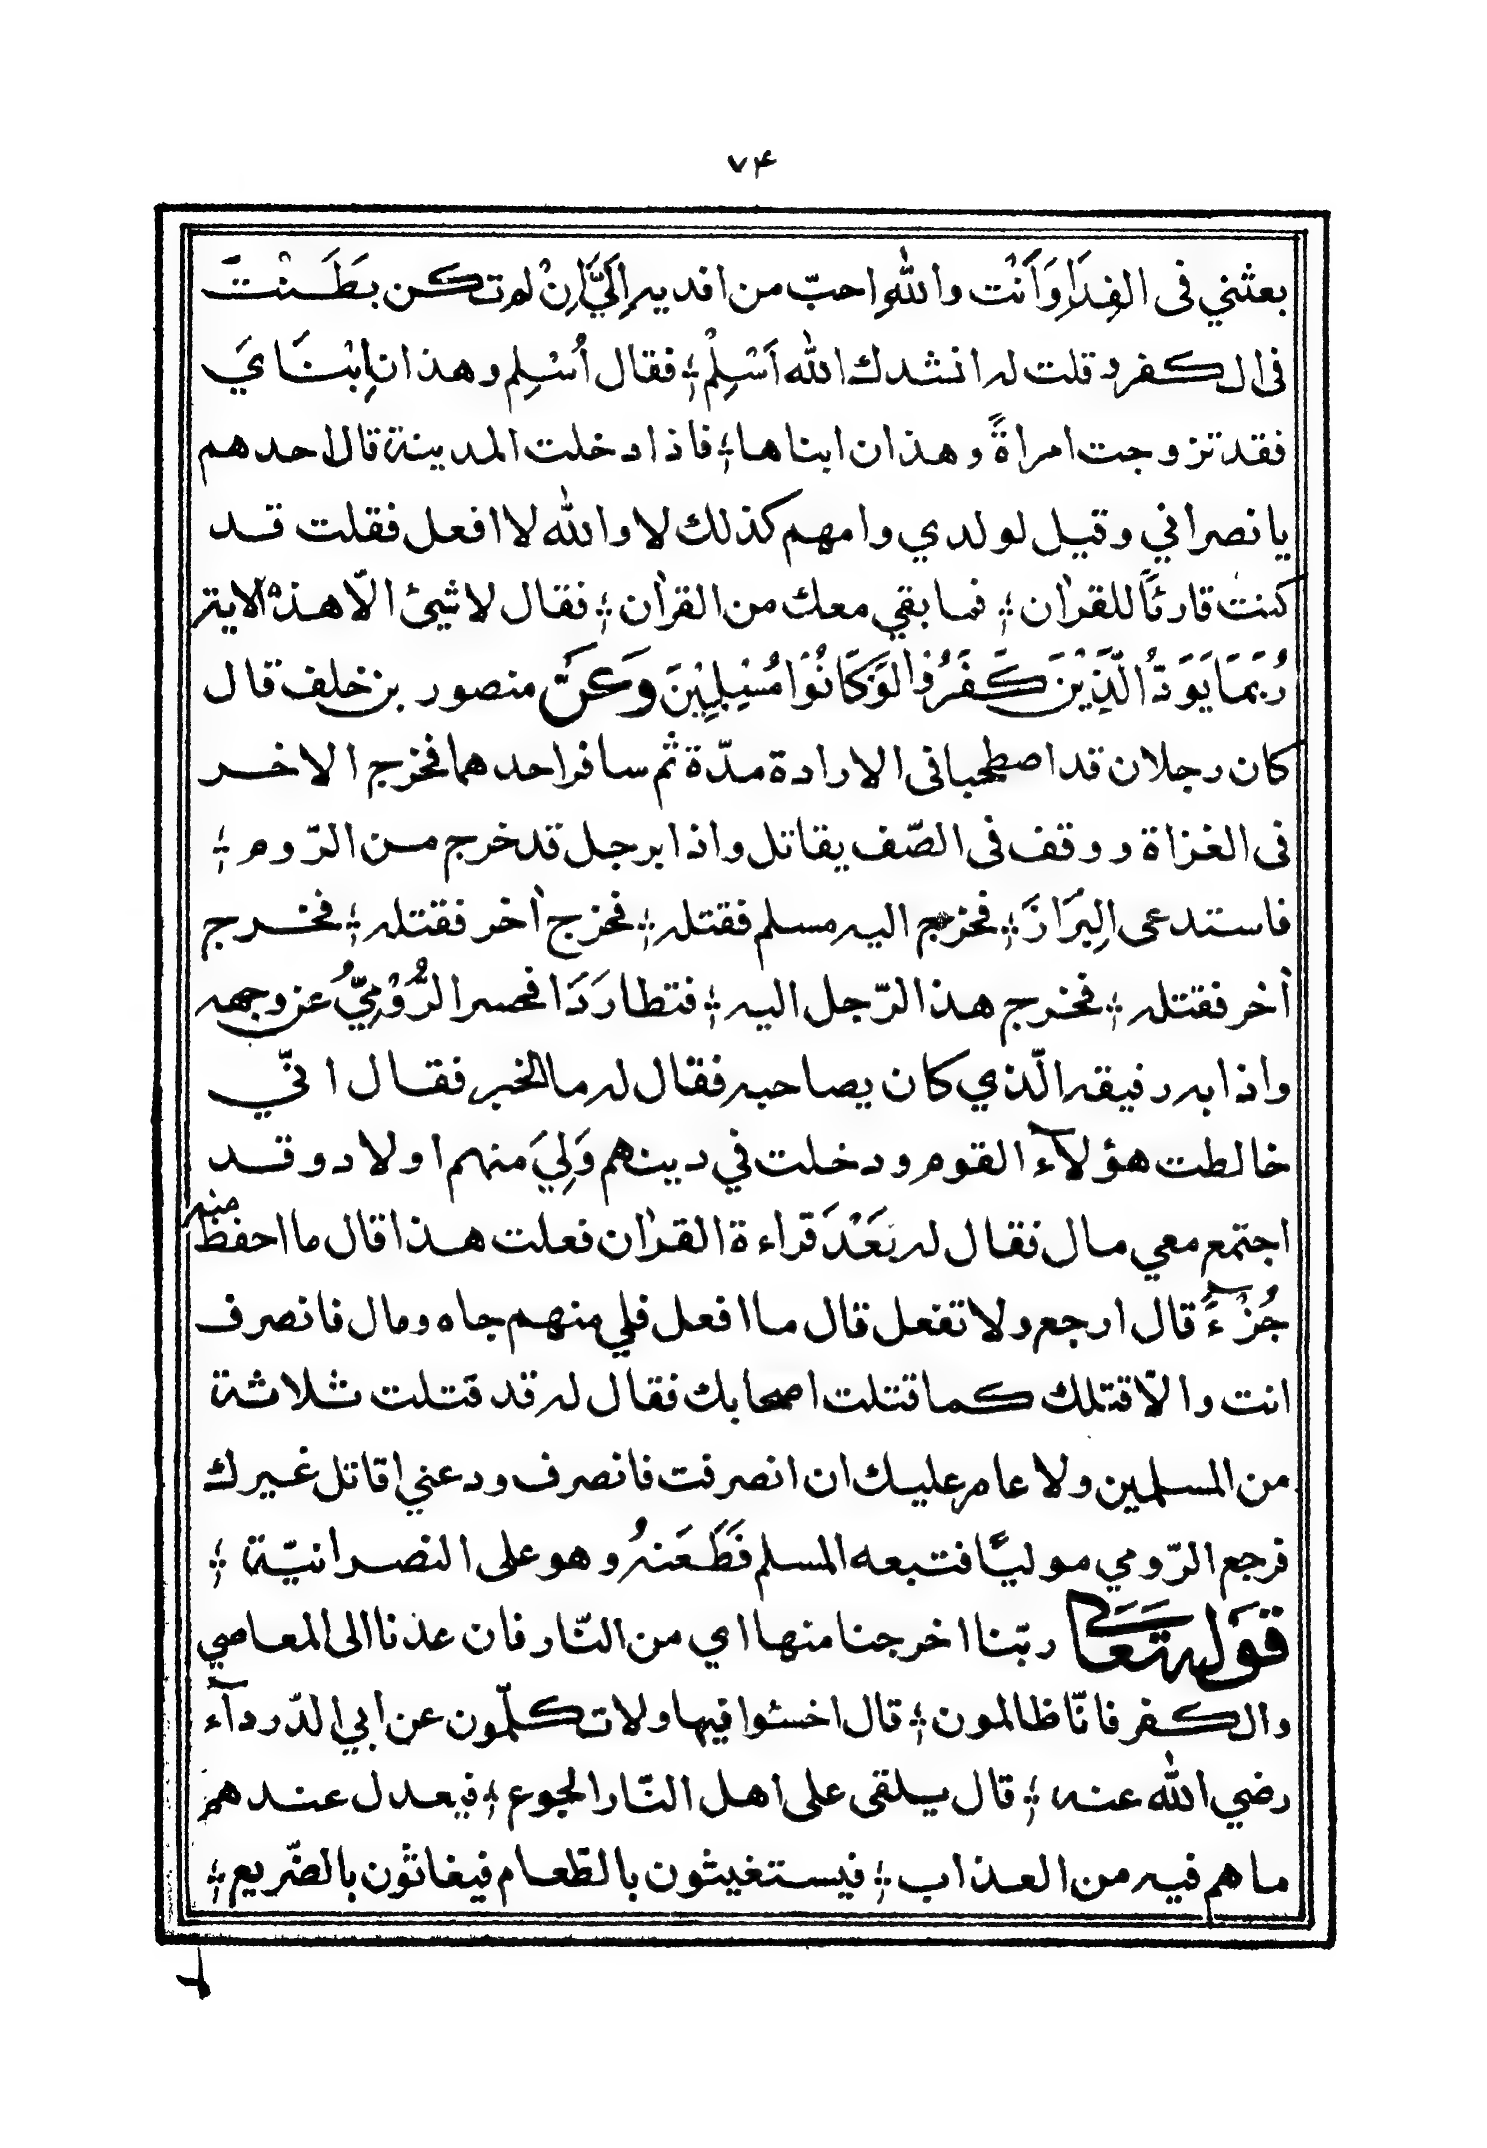 ٧٤
بعثني فى الفِدَا وَاَنْت والله احبّ من افديه اِلَيَّ اِنْ لم تكن بَطَنْتَ
فى الكفر و قلت له انشدك الله اَسْلِمْ ؛ فقال اُسْلِم و هذا نِ ابْنَايَ
فقد تزوجت امراةً و هذان ابناها ؛ فاذا دخلت المدينة قال احدهم
يا نصراني و قيل لولدي وامهم كذلك لا والله لا افعل فقلت قد
كنت قارئًا للقراٰن ؛ فما بقي معك من القراٰن ؛ فقال لا شيئ الّا هذه الاية
رُبَمَا يَوَدُّ الَّذِيْنَ كَفَرُوْا لَوْ كَانُوْا مُسْلِمِيْنَ وَعَنْ منصور بن خلف قال
كان رجلان قد اصطحبا فى الارادة مدّة ثم سافر احدهما فخرج الاخر
فى الغزاة و وقف فى الصّف يقاتل واذا برجل قد خرج من الرّوم ؛
فاستدعى البِرَازَ ؛ فخرج اليه مسلم فقتله ؛ فخرج اٰخر فقتله ؛ فخرج
اٰخر فقتله ؛ فخرج هذا الرّجل اليه ؛ فتطارَدَا فحسر الرُّوْمِيُّ عن وجهه
واذا به رفيقه الّذي كان يصاحبه فقال له ما الخبر فقال انّي
خالطت هؤلآء القوم و دخلت في دينهم وَلِيَ منهم اولاد و قد
اجتمع معي مال فقال له بَعْدَ قراءة القراٰن فعلت هذا قال ما احفظ منه
جُزْءً قال ارجع ولا تفعل قال ما افعل فلي منهم جاه و مال فانصرف
انت والّا قتلتك كما قتلت اصحابك فقال له قد قتلت ثلاثة
من المسلمين ولا عام عليك ان انصرفت فانصرف ودعني اقاتل غيرك
فرجع الرّومي موليًّا فتبعه المسلم فَطَعَنَهُ و هو على النصرانيّة ؛
قوله تعالى ربّنا اخرجنا منها اي من النّار فان عدنا الى المعاصي
والكفر فانّا ظالمون ؛ قال اخسئوا فيها ولا تكلّمون عن ابي الدّردآء
رضي الله عنه ؛ قال يلقى على اهل النّار الجوع ؛ فيعدل عندهم
ما هم فيه من العذاب ؛ فيستغيثون بالطّعام فيغاثون بالضّريع ؛
لا